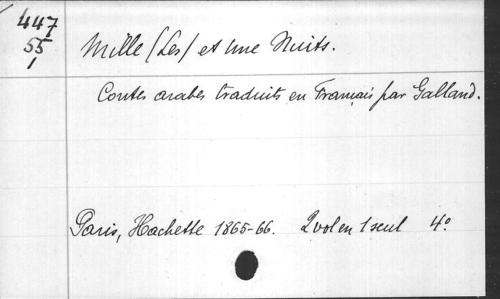 447
55
1
Mille (Les) et Une Nuits.
Contes arabes traduits en Français par Galland.
Paris, Hachette 1865-66. 2 vol en 1 seul 4º